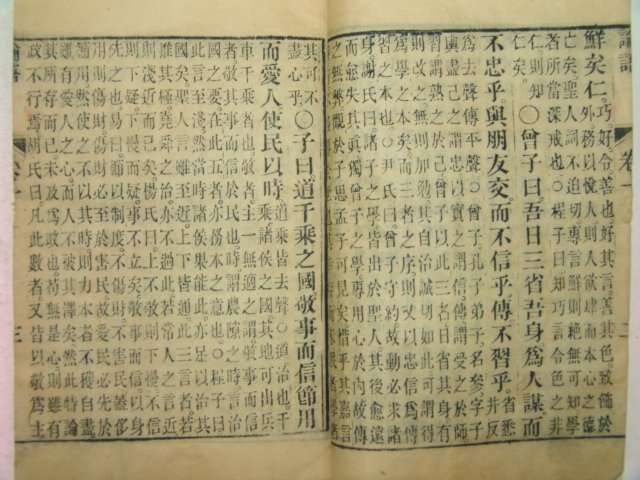 論語 卷一 二
鮮矣仁。巧好令善也好其言善其色致飾於
外務以悅人則人欲肆而本心之德
亡矣聖人詞不迫切專言鮮則絕無可知學
者所當深戒也○程子曰知巧言令色之非
仁則知
仁矣○曾子曰吾日三省吾身爲人謀而
不忠乎與朋友交而不信乎傳不習乎省悉
井反
爲去聲傳平聲○曾子孔子弟子名參字子
輿盡己之謂忠以實之謂信傳謂受之於師
習謂熟之於己曾子以此三者日省其身有
則改之無則加勉其自治誠切如此可謂得
爲學之本矣而三者之序則又以忠信爲傳
習之本也○尹氏曰曾子守約故動必求諸
身謝氏曰諸子之學皆出於聖人其後愈遠
而愈失其真獨曾子之學專用心於內故傳
之無弊觀於子思孟子可見矣惜乎其嘉言
其可不
盡心乎○子曰道千乘之國敬事而信節用
而愛人使民以時道乘皆去聲○道治也千
乘諸侯之國其地可出兵
車千乘者也敬者主一無適之謂敬事而信
者敬其事而信於民也時謂農隙之時言治
國之要在此五者亦務本之意也○程子曰
此言至淺然當時諸侯果能此亦足以治其
國矣聖人言雖至近上下皆通此三言者若
推其極堯舜之治亦不過此若常人之言近
則淺近而已矣楊氏曰上不敬則下慢不信
則下疑下慢而疑事不立矣敬事而信以身
先之也易曰節以制度不傷財不害民蓋侈
用則傷財傷財必至於害民故愛民必先於
節用然使之不以其時則力本者不獲自盡
雖有愛人之心而人不被其澤矣然此特論
其所存而已未及爲政也苟無是心則雖有
政不行焉胡氏曰凡此數者又皆以敬爲主
論語 卷一 三